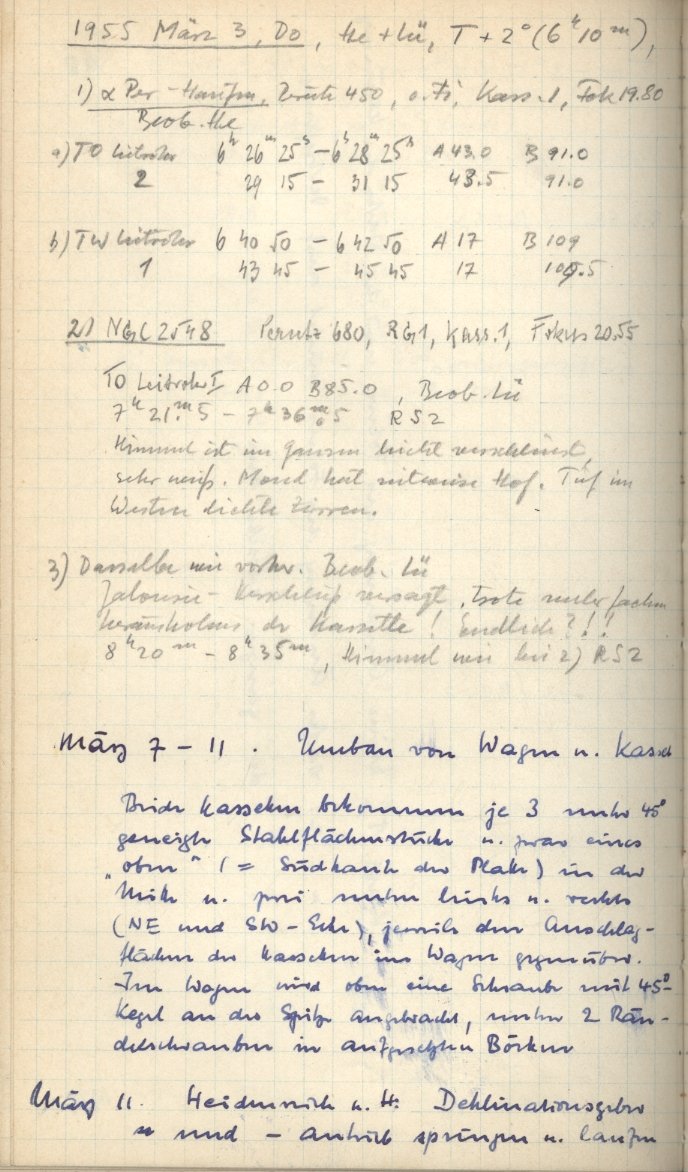 1955 März 3, Do, He + Lü, T + 2° (6ʰ10ᵐ),
1) α Per-Haufen, Perutz 450, o. Fi, Kass. 1, Fok 19.80
Beob. He
a) TO Leitrohr 6ʰ 26ᵐ 25ˢ – 6ʰ 28ᵐ 25ˢ A 43.0 B 91.0
2 29 15 – 31 15 43.5 91.0
b) TW Leitrohr 6 40 50 – 6 42 50 A 17 B 109
1 43 45 – 45 45 17 .5
2) NGC 2548 Perutz 680, RG1, Kass. 1, Fokus 20.55
TO Leitrohr I A 0.0 B 85.0, Beob. Lü
7ʰ 21ᵐ.5 – 7ʰ 36ᵐ.5 RS2
Himmel ist im ganzen leicht verschleiert,
sehr weiß. Mond hat zeitweise Hof. Tief im
Westen dichte Zirren.
3) Dasselbe wie vorher. Beob. Lü
Jalousie-Verschluß versagt, trotz mehrfachen
Herausholens der Kassette! Endlich?!!
8ʰ20ᵐ – 8ʰ35ᵐ, Himmel wie bei 2) RS2
März 7 – 11. Umbau von Wagen u. Kassett
Beide Kassetten bekommen je 3 unter 45°
geneigte Stahlflächenstücke u. zwar eines
"oben" (= Südkante der Platte) in der
Mitte u. zwei unten links u. rechts
(NE und SW-Ecke), jeweils den Anschlag-
flächen der Kassetten im Wagen gegenüber.
Im Wagen wird oben eine Schraube mit 45°-
Kegel an der Spitze angebracht, unten 2 Rän-
delschrauben in aufgesetzten Böcken
März 11. Heidenreich u. H: Deklinationsgeber
und – antrieb springen u. laufen